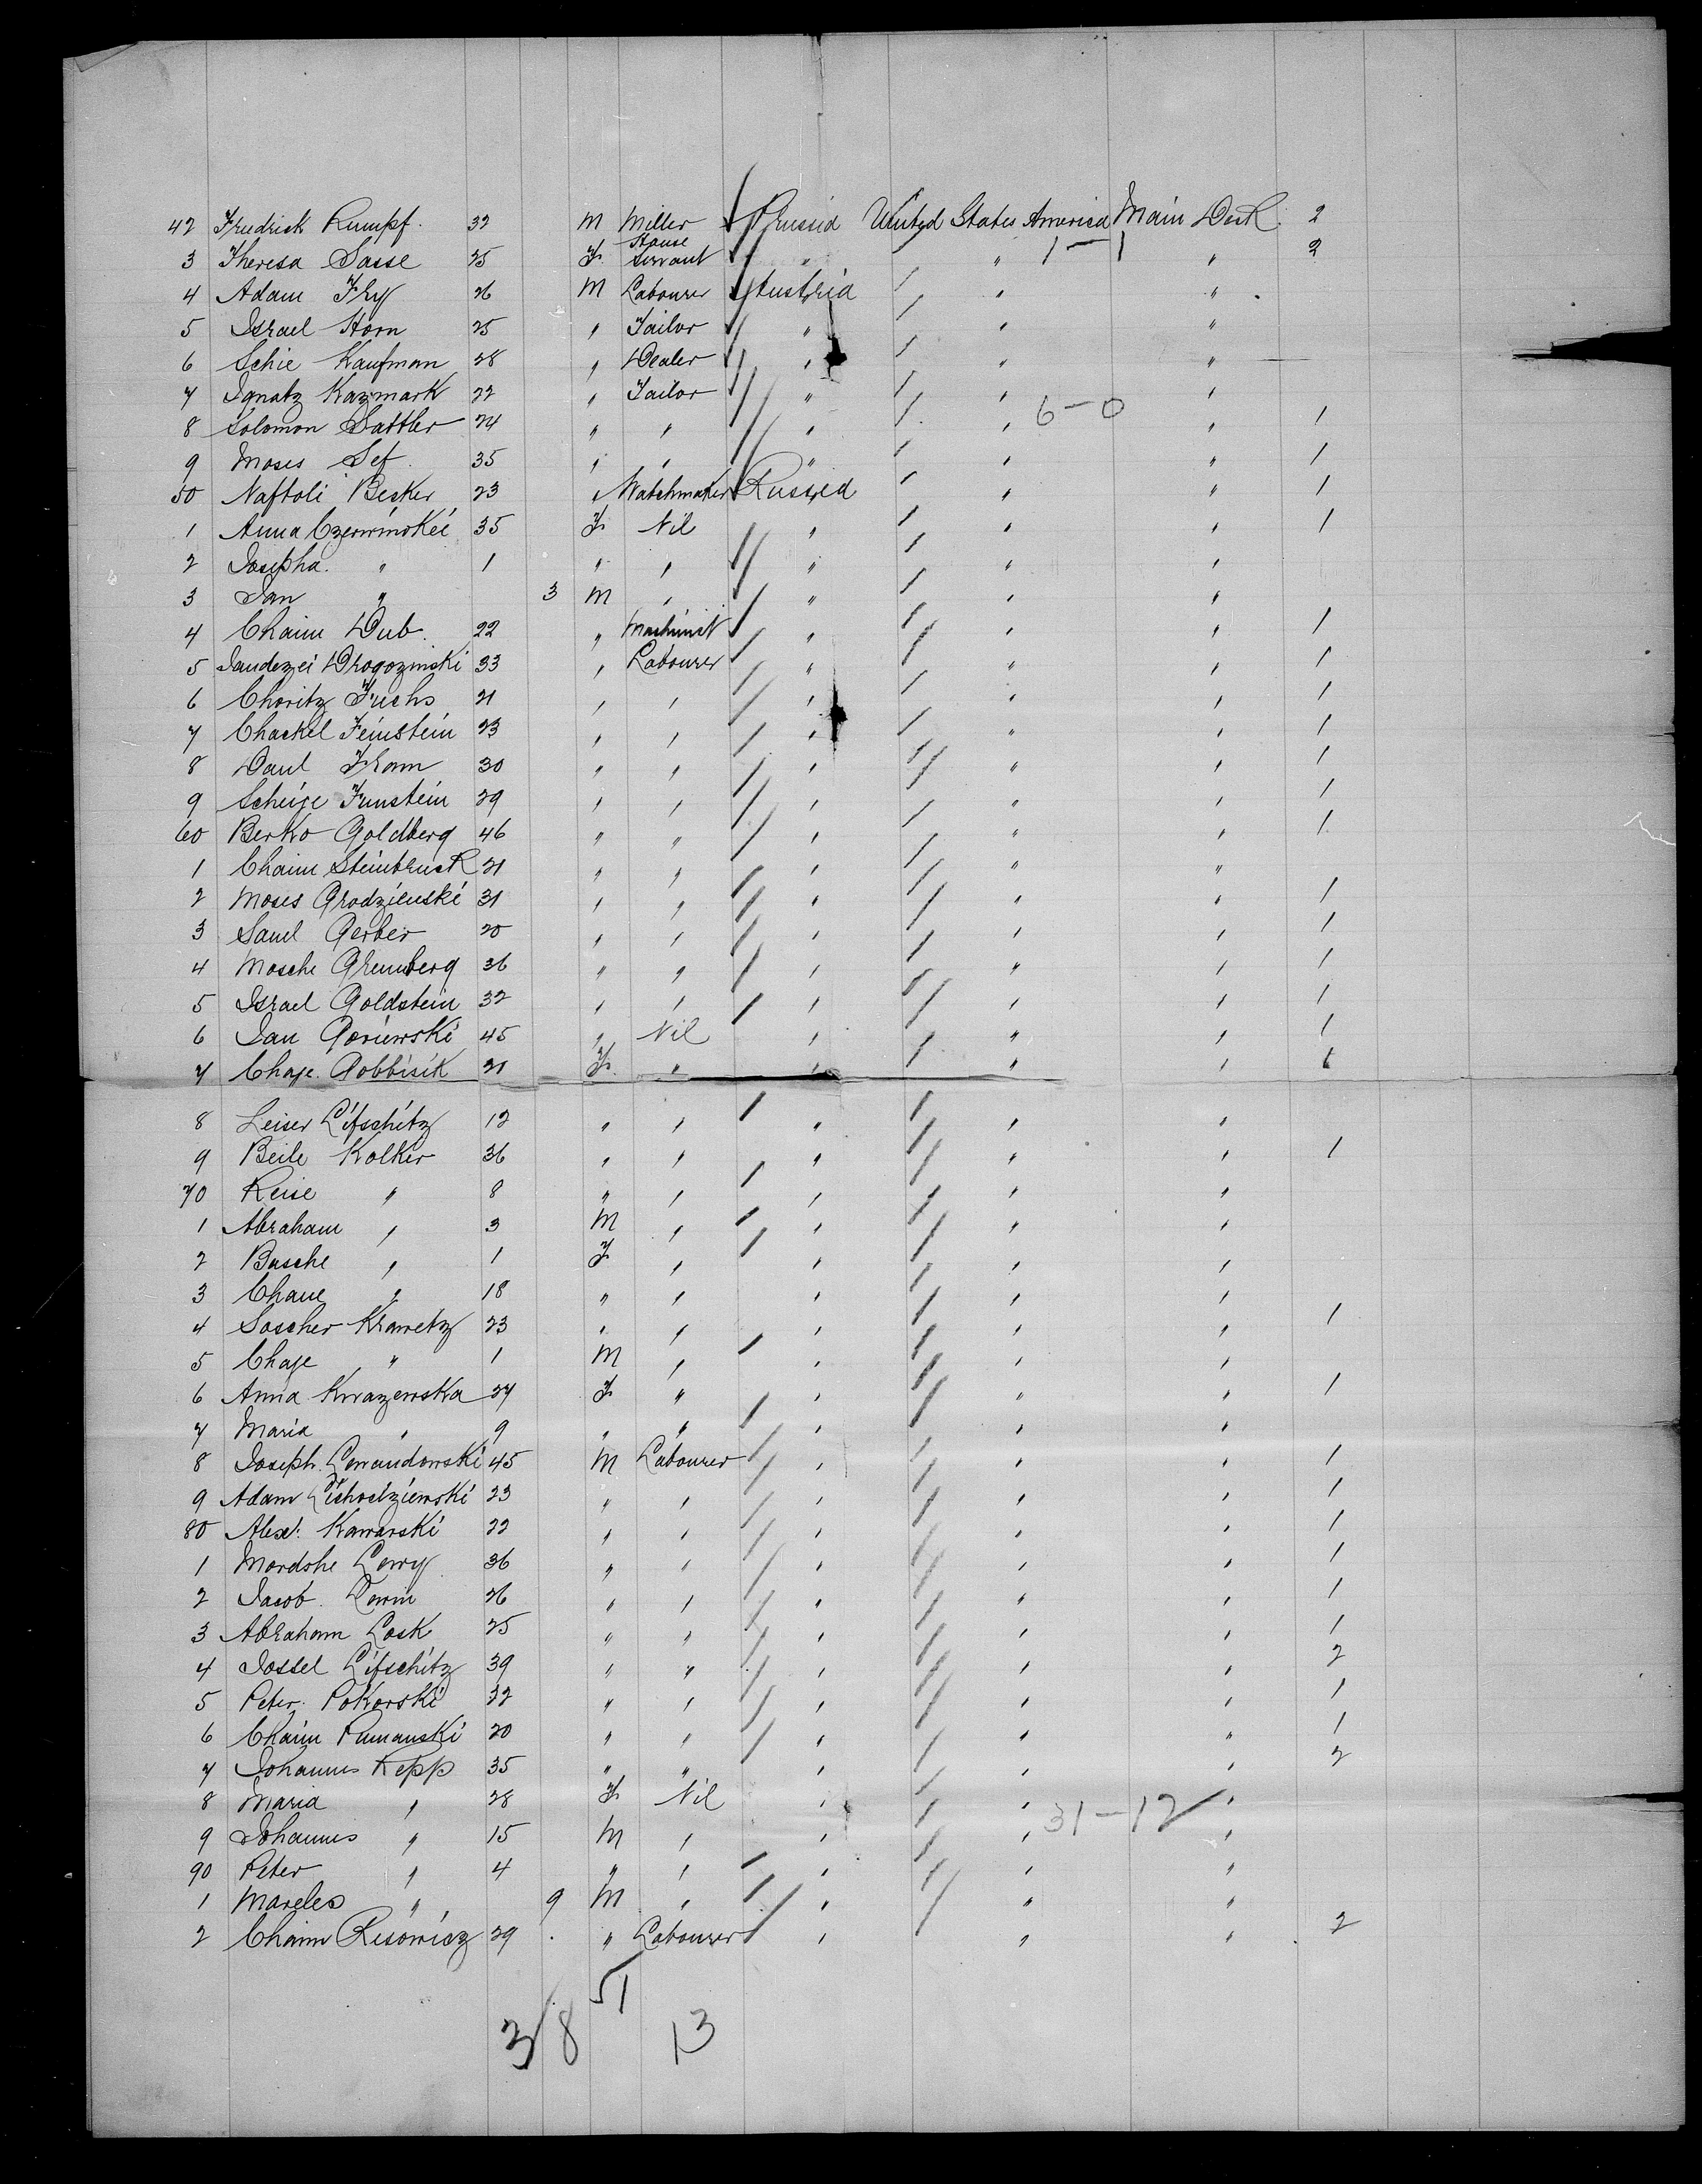 42 Friedrick Rumpf. 32 M Miller Prussia United States America Main Deck 2
3 Theresa Sasse 25 F. House Servant " " 1 — 1 " 2
4 Adam Fry 26 M Labourer Austria " "
5 Israel Horn 25 " Tailor " " "
6 Schie Kaufman 28 " Dealer " " "
7 Ignatz Kazmark 22 " Tailor " " "
8 Solomon Sattler 24 " " " " 6 — 0 " 1
9 Moses Sef. 35 " " " " " 1
50 Naftoli Becker 23 " Watchmaker Russia " " 1
1 Anna Czerwinskei 35 F. Nil " " " 1
2 Josepha. " 1 " " " " "
3 Jan " 3 M " " " "
4 Chaim Dub. 22 " Machinist " " " 1
5 Drogozinski 33 " Labourer " " " 1
6 Choritz Fuchs 21 " " " " " 1
7 Chackel Feinstein 23 " " " " " 1
8 Daul Fram 30 " " " " " 1
9 Scheige Funstein 29 " " " " " 1
60 Berko Goldberg 46 " " " " " 1
1 Chaim Steinbruck 21 " " " " "
2 Moses Grodzienski 31 " " " " " 1
3 Saml Gerber 20 " " " " " 1
4 Mosche Grunberg 36 " " " " " 1
5 Israel Goldstein 32 " " " " " 1
6 Jan Goriewski 45 " Nil " " " 1
7 Chaje. Gobbisik 21 F. " " " " 1
8 Leiser Lifschitz 12 " " " " "
9 Beile Kolker 36 " " " " " 1
70 Reise " 8 " " " " "
1 Abraham " 3 M " " " "
2 Basche " 1 F " " " "
3 Chane " 18 " " " " "
4 Soscher Krawetz 23 " " " " " 1
5 Chaje " 1 M " " " "
6 Anna Kwazewska 27 F " " " " 1
7 Maria " 9 " " " " "
8 Joseph. Lewandowski 45 M Labourer " " " 1
9 Adam 23 " " " " " 1
80 Alex. Kawarski 22 " " " " " 1
1 Mordshe Lewy 36 " " " " " 1
2 Jacob. Lewin 26 " " " " " 1
3 Abraham Losk 25 " " " " " 1
4 Jossel Lifschitz 39 " " " " " 2
5 Peter. Pokorski 32 " " " " " 1
6 Chaim Pumanski 20 " " " " " 1
7 Johannes Repp 35 " " " " " 2
8 Maria " 28 F Nil " " 31 — 12 "
9 Johannes " 15 M " " " "
90 Peter " 4 " " " " "
1 Mareles " 9 M " " " "
2 Chaim Resowicz 29 " Labourer " " " 2
51
3/8 13